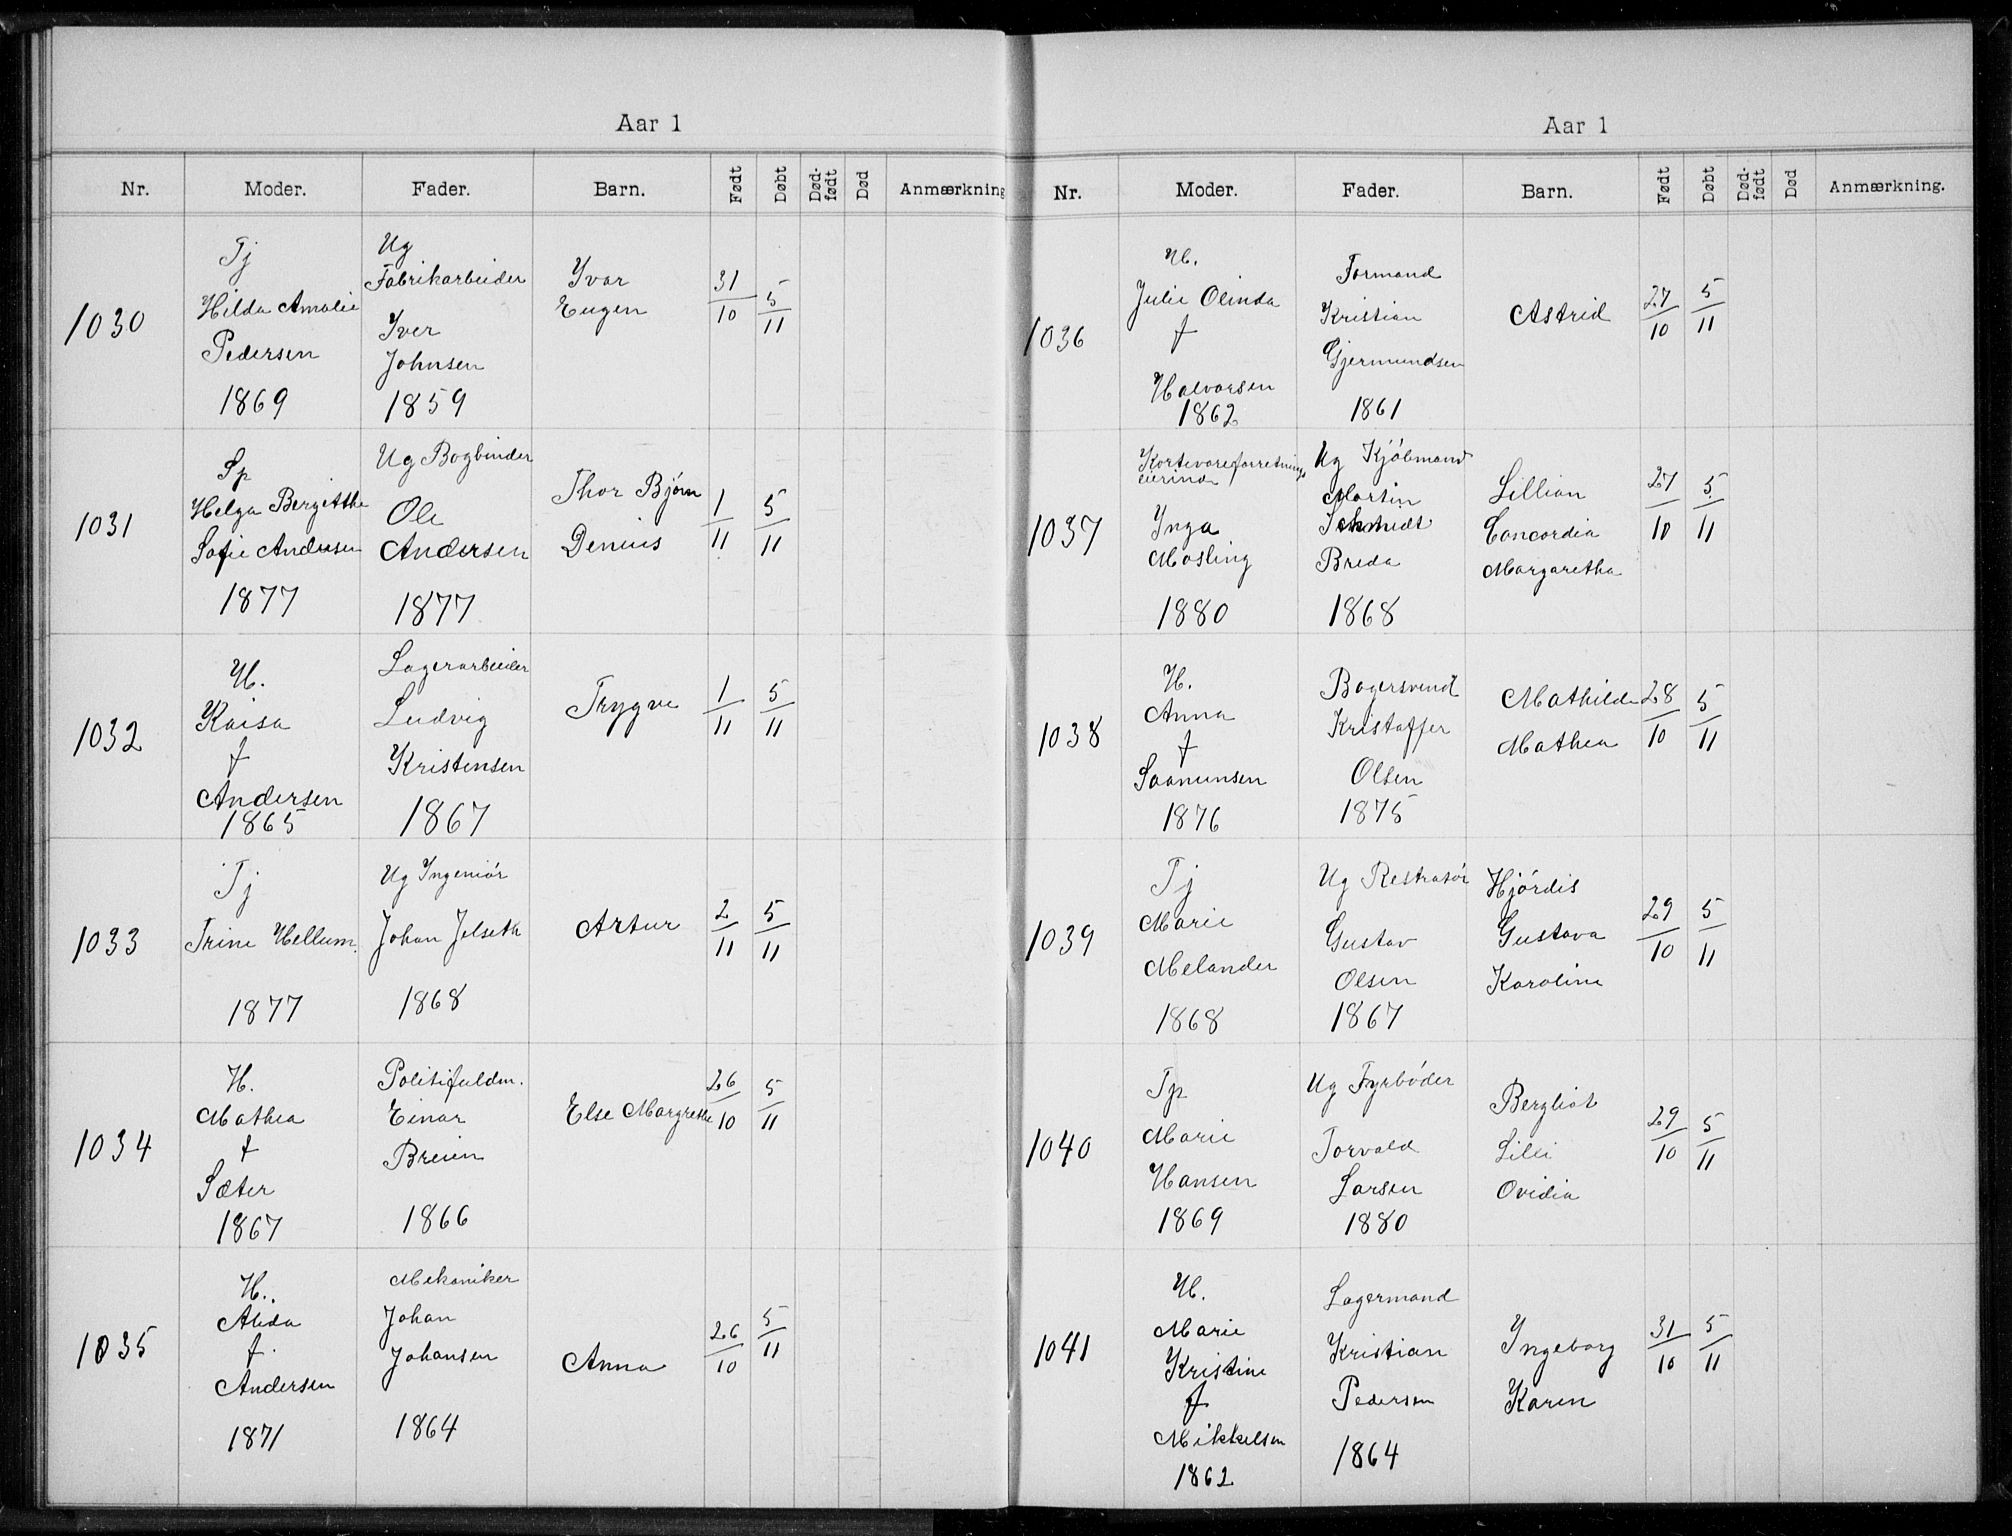 Aar 1
Nr. Moder. Fader. Barn. Født Døbt Død-født Død Anmærkning
1030
Tj
Hilda Amalie
Pedersen
1869
Ug
Fabrikarbeider
Iver
Johnsen
1859
Yvar
Eugen
31/10 5/11
1031
Sp
Helga Bergitthe
Sofie Andersen
1877
Ug Bogbinder
Ole
Andersen
1877
Thor Bjørn
Denius
1/11 5/11
1032
H.
Kaisa
f
Andersen
1865
Lagerarbeider
Ludvig
Kristensen
1867
Trygve
1/11 5/11
1033
Tj
Trine Hellum
1877
Ug Ingeniör
Johan Jelseth
1868
Artur
2/11 5/11
1034
H.
Mathea
f
Sæter
1867
Politifuldm.
Einar
Breien
1866
Else Margrethe
26/10 5/11
1035
H.
Alida
f.
Andersen
1871
Mekaniker
Johan
Johansen
1864
Anna
26/10 5/11
Aar 1
Nr. Moder. Fader. Barn. Født Døbt Død-født Død Anmærkning.
1036
H.
Julie Olinda
f
Halvorsen
1862
Formand
Kristian
Gjermundsen
1861
Astrid
27/10 5/11
1037
Kortevareforretnings
eierinde
Inga
Mosling
1880
Ug Kjöbmand
Martin
Schmidt
Breda
1868
Lillian
Concordia
Margaretha
27/10 5/11
1038
H.
Anna
f
Saamunsen
1876
Bagersvend
Kristoffer
Olsen
1875
Mathilde
Mathea
28/10 5/11
1039
Tj
Marie
Melander
1868
Ug Restratör
Gustav
Olsen
1867
Hjördis
Gustava
Karoline
29/10 5/11
1040
Tp
Marie
Hansen
1869
Ug Fyrböder
Torvald
Larsen
1880
Bergliot
Lilli
Ovidia
29/10 5/11
1041
H.
Marie
Kristine
f
Mikkelsen
1862
Lagermand
Kristian
Pedersen
1864
Ingeborg
Karen
31/10 5/11